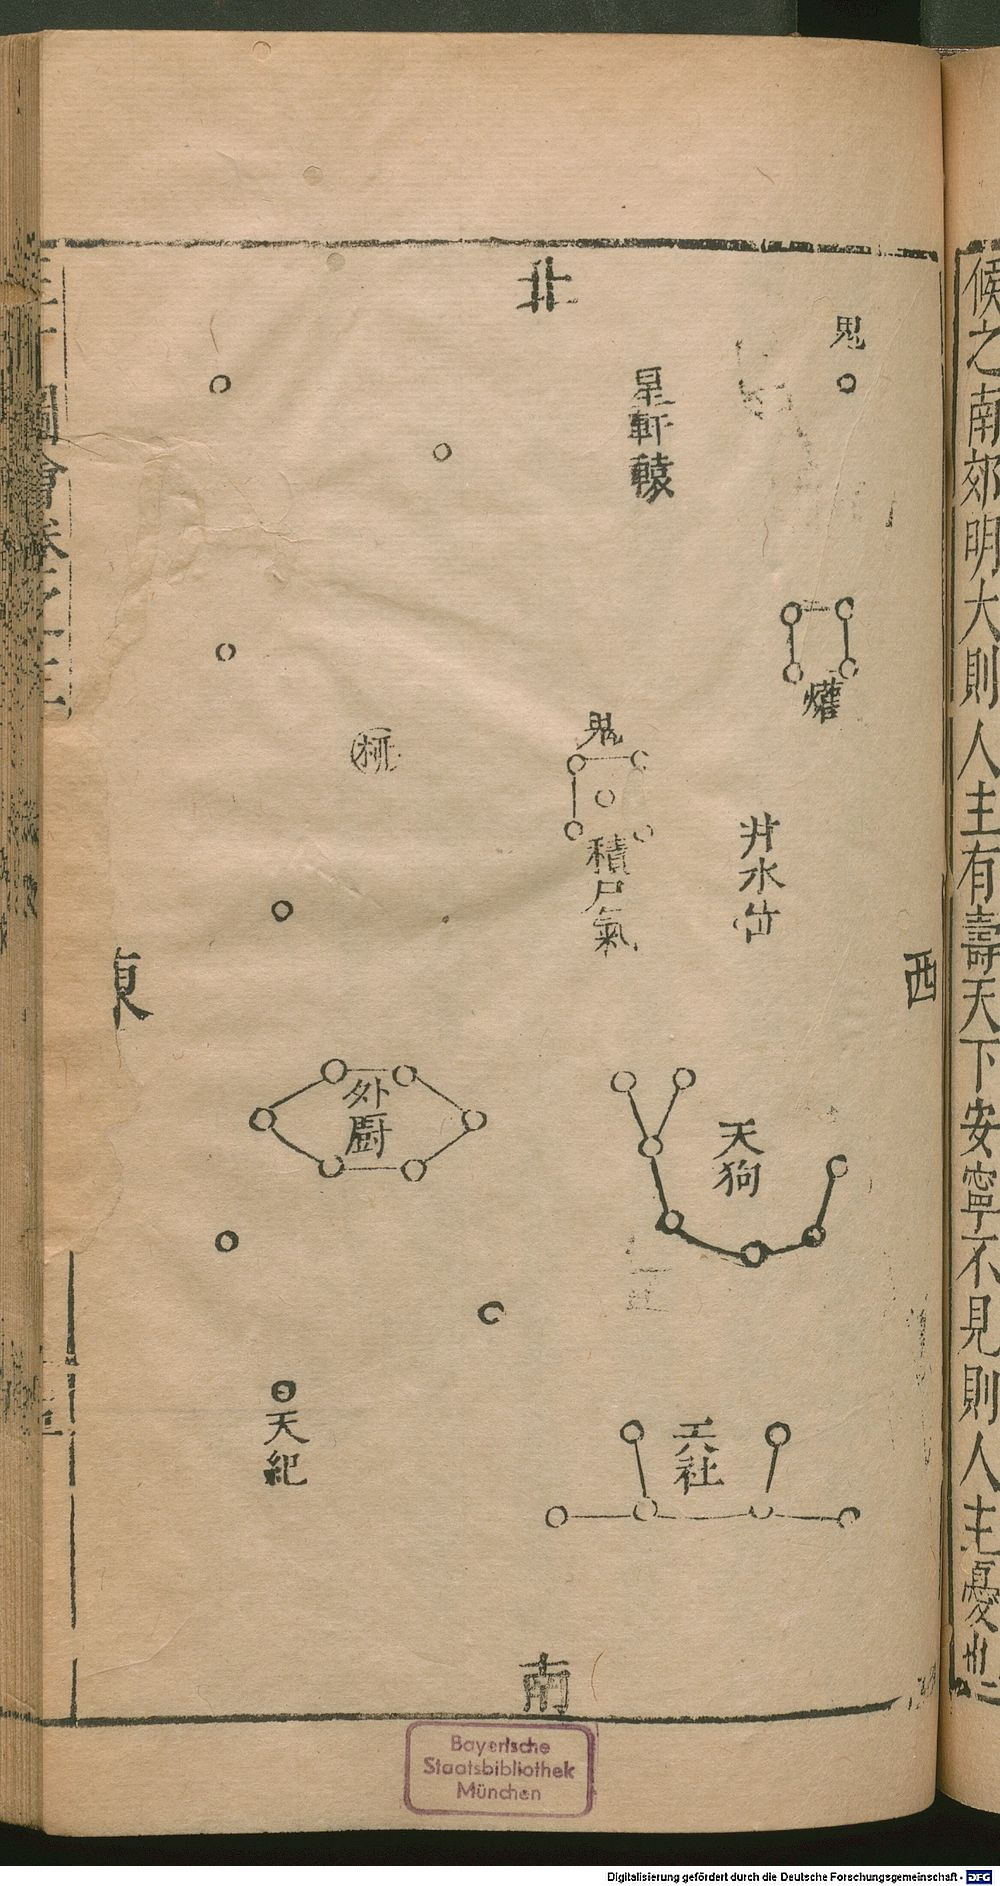 候之南郊明大則人主有壽天下安寧不見則人主憂
北
鬼
星軒轅
爟
鬼
積尸氣
井水位
柳
西
東
外廚
天狗
天紀
社
南
圖會卷之
Bayerische
Staatsbibliothek
München
Digitalisierung gefördert durch die Deutsche Forschungsgemeinschaft - DFG